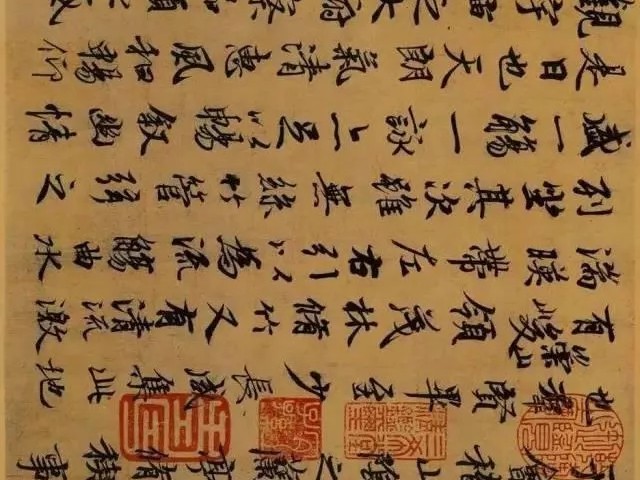 會稽山陰之蘭亭脩稧事
也羣賢畢至少長咸集此地
有崇山峻領茂林脩竹又有清流激
湍暎帶左右引以為流觴曲水
列坐其次雖無絲竹管弦之
盛一觴一詠亦足以暢敘幽情
是日也天朗氣清惠風和暢仰
觀宇宙之大俯察品類之盛